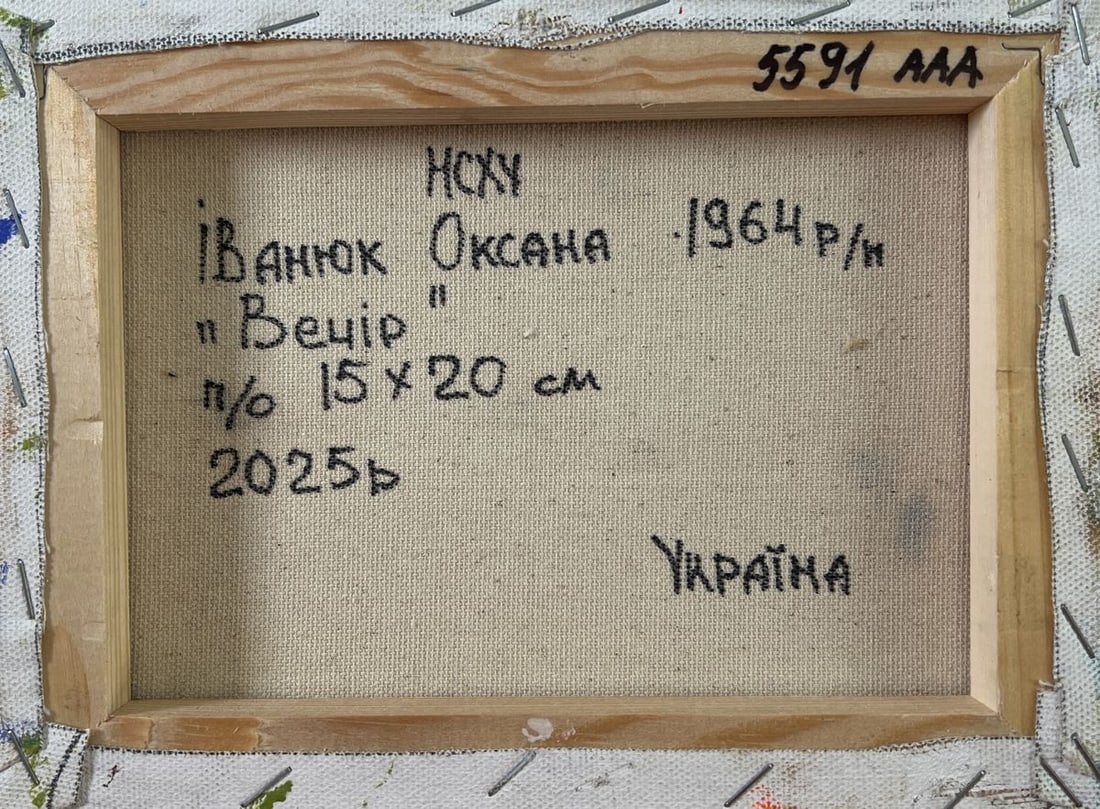 5591 AAA
НСХУ
Іванюк Оксана 1964 р/н
"Вечір"
п/о 15х20 см
2025р
Україна